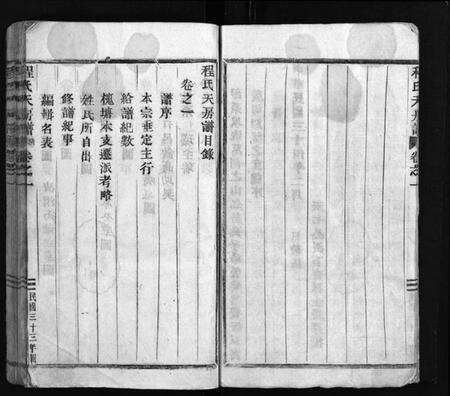 程氏天房譜
卷之一
程氏天房譜目錄
卷之一
譜序
本宗垂定主行
給譜紀數
槐塘本支遷派考略
姓氏所自出
修譜紀事
編輯名表
程氏天房譜
卷之一
民國三十三年